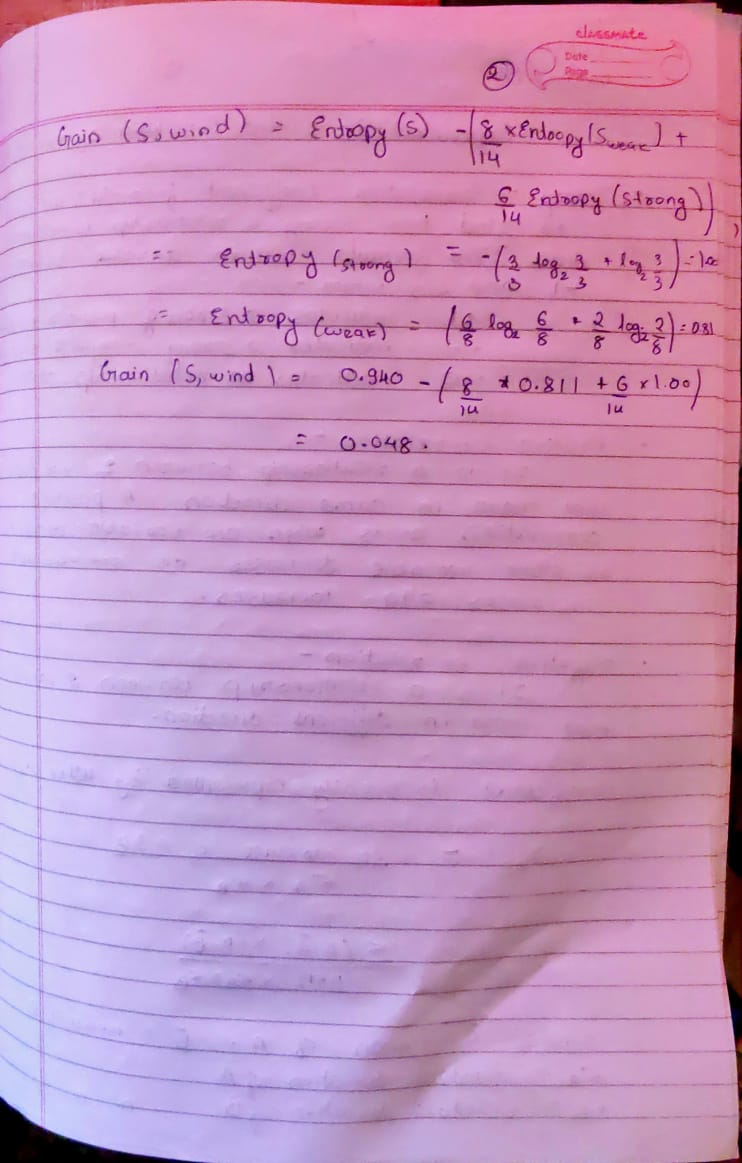 classmate
Date
Page
2
Gain (S, wind) = Entropy (S) - (8/14 × Entropy (Sweak) +
6/14 Entropy (Strong))
= Entropy (strong) = -(3/3 log2 3/3 + log2 3/3) = 1.00
= Entropy (weak) = (6/8 log2 6/8 + 2/8 log2 2/8) = 0.81
Gain (S, wind) = 0.940 - (8/14 * 0.811 + 6/14 × 1.00)
= 0.048.